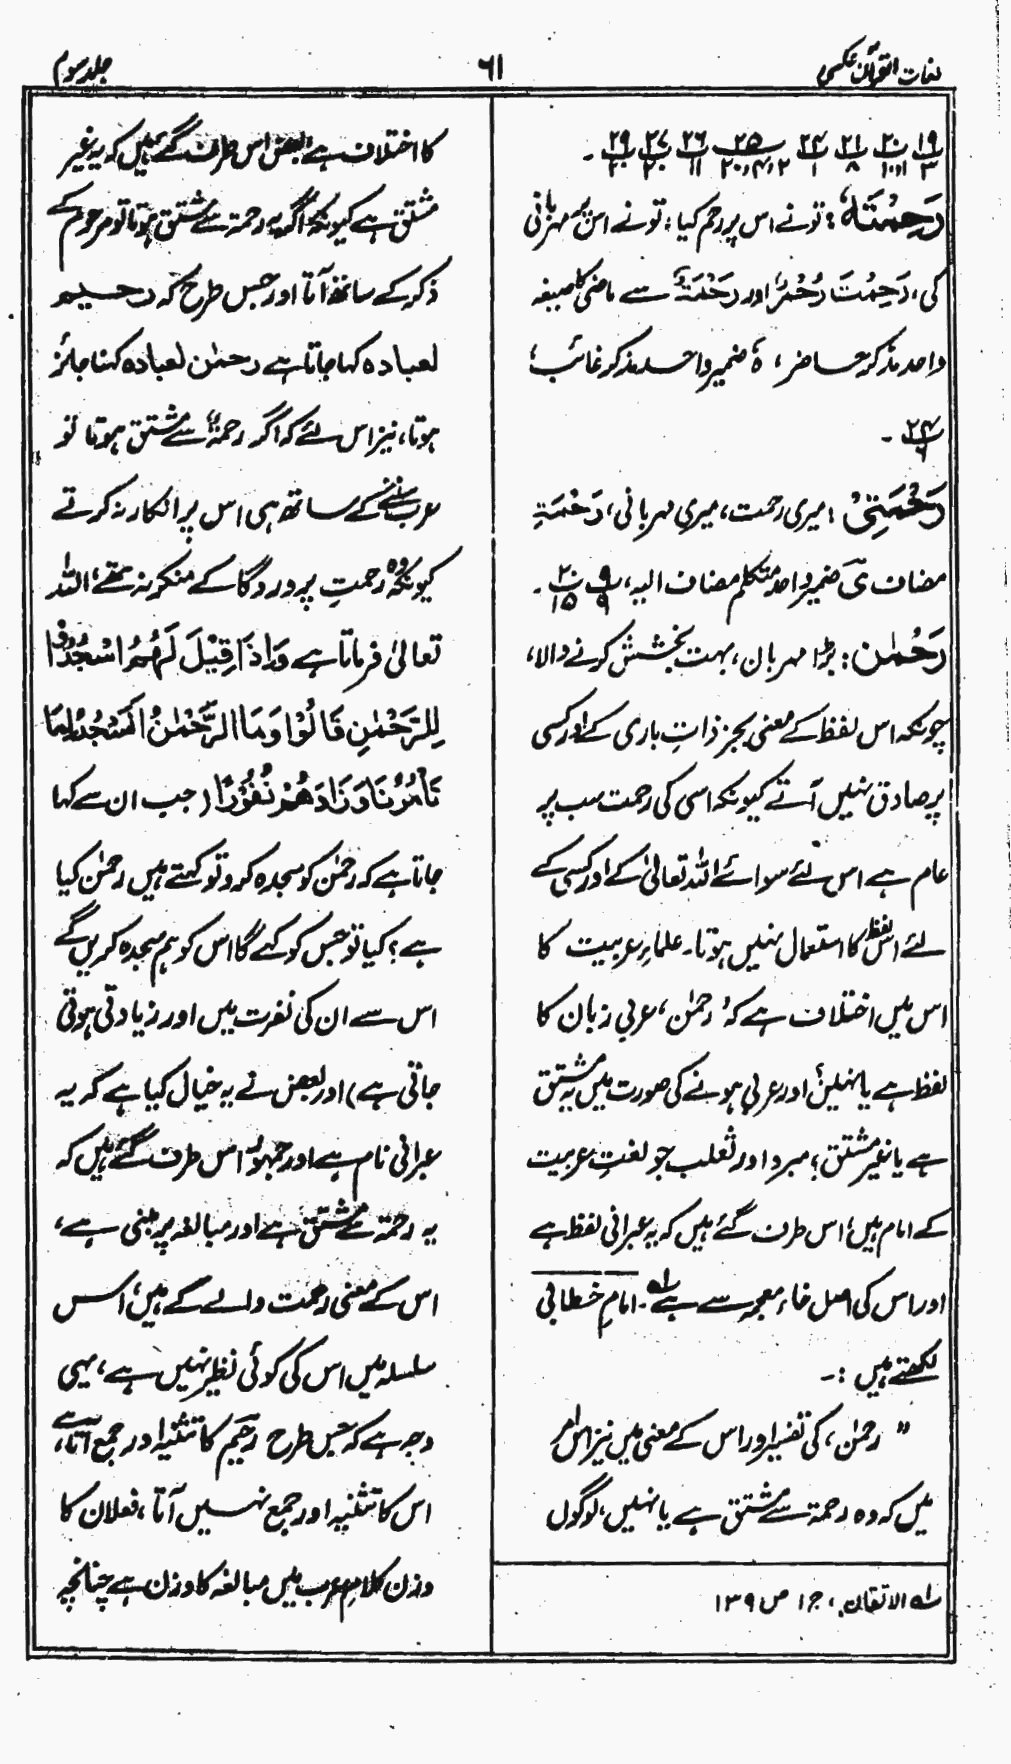 لغات القرآن عکسی
۶۱
جلد سوم
۱۹/۳ ۲۰/۱۰،۱۱ ۲۱/۸ ۲۴/۱ ۲۵/۲،۴،۲۰ ۲۶/۱۱ ۲۷/۲۰ ۲۹/۲۰ ۔
رَحِمْتَهٗ : تونے اس پر رحم کیا ، تونے اس پر مہربانی
کی ، رَحِمْتَ رُحْمٌ اور رَحْمَةٌ سے ماضی کا صیغہ
واحد مذکر حاضر ، هٗ ضمیر واحد مذکر غائب ،
۲۴/۶ ۔
رَحْمَتِیْ : میری رحمت ، میری مہربانی ، رَحْمَةِ
مضاف یَ ضمیر واحد متکلم مضاف الیہ ، ۹/۹ ۲۰/۱۵ ۔
رَحْمٰن : بڑا مہربان ، بہت بخشش کرنے والا ،
چونکہ اس لفظ کے معنی بجز ذاتِ باری کے اور کسی
پر صادق نہیں آتے کیونکہ اسی کی رحمت سب پر
عام ہے اس لئے سوائے اللہ تعالیٰ کے اور کسی کے
لئے اس لفظ کا استعمال نہیں ہوتا ۔ علماءِ عربیت کا
اس میں اختلاف ہے کہ ’رحمٰن‘ ، عربی زبان کا
لفظ ہے یا نہیں ؟ اور عربی ہونے کی صورت میں یہ مشتق
ہے یا غیر مشتق ؛ مبرد اور ثعلب جو لغتِ عربیت
کے امام ہیں ، اس طرف گئے ہیں کہ یہ عبرانی لفظ ہے
اور اس کی اصل خاء معجمہ سے ہے لہ ۔ امام خطابی
لکھتے ہیں :۔
" رحمٰن ، کی تفسیر اور اس کے معنی میں نیز اس امر
میں کہ وہ رحمۃ سے مشتق ہے یا نہیں ، لوگوں
لہ الاتقان ، ج ۱ ص ۱۳۹
کا اختلاف ہے بعض اس طرف گئے ہیں کہ یہ غیر
مشتق ہے کیونکہ اگر یہ رحمۃ سے مشتق ہوتا تو مرحوم کے
ذکر کے ساتھ آتا اور جس طرح کہ رحیم
لعبادہ کہا جاتا ہے رحمٰن لعبادہ کہنا جائز
ہوتا ، نیز اس لئے کہ اگر رحمۃ سے مشتق ہوتا تو
عرب سننے کے ساتھ ہی اس پر انکار نہ کرتے
کیونکہ وہ رحمتِ پروردگا کے منکر نہ تھے ، اللہ
تعالیٰ فرماتا ہے وَاِذَا قِیْلَ لَهُمُ اسْجُدُوْا
لِلرَّحْمٰنِ قَالُوْا وَمَا الرَّحْمٰنُ اَنَسْجُدُ لِمَا
تَأْمُرُنَا وَزَادَهُمْ نُفُوْرًا ( جب ان سے کہا
جاتا ہے کہ رحمٰن کو سجدہ کرو تو کہتے ہیں رحمٰن کیا
ہے ؟ کیا تو جس کو کہے گا اس کو ہم سجدہ کریں گے
اس سے ان کی نفرت میں اور زیادتی ہوتی
جاتی ہے ) اور بعض نے یہ خیال کیا ہے کہ یہ
عبرانی نام ہے اور جمہور اس طرف گئے ہیں کہ
یہ رحمۃ سے مشتق ہے اور مبالغہ پر مبنی ہے ،
اس کے معنی رحمت والے کے ہیں ، اس
سلسلہ میں اس کی کوئی نظیر نہیں ہے ، یہی
وجہ ہے کہ جس طرح رحیم کا تثنیہ اور جمع آتا ہے ،
اس کا تثنیہ اور جمع نہیں آتا ، فعلان کا
وزن کلامِ عرب میں مبالغہ کا وزن ہے چنانچہ